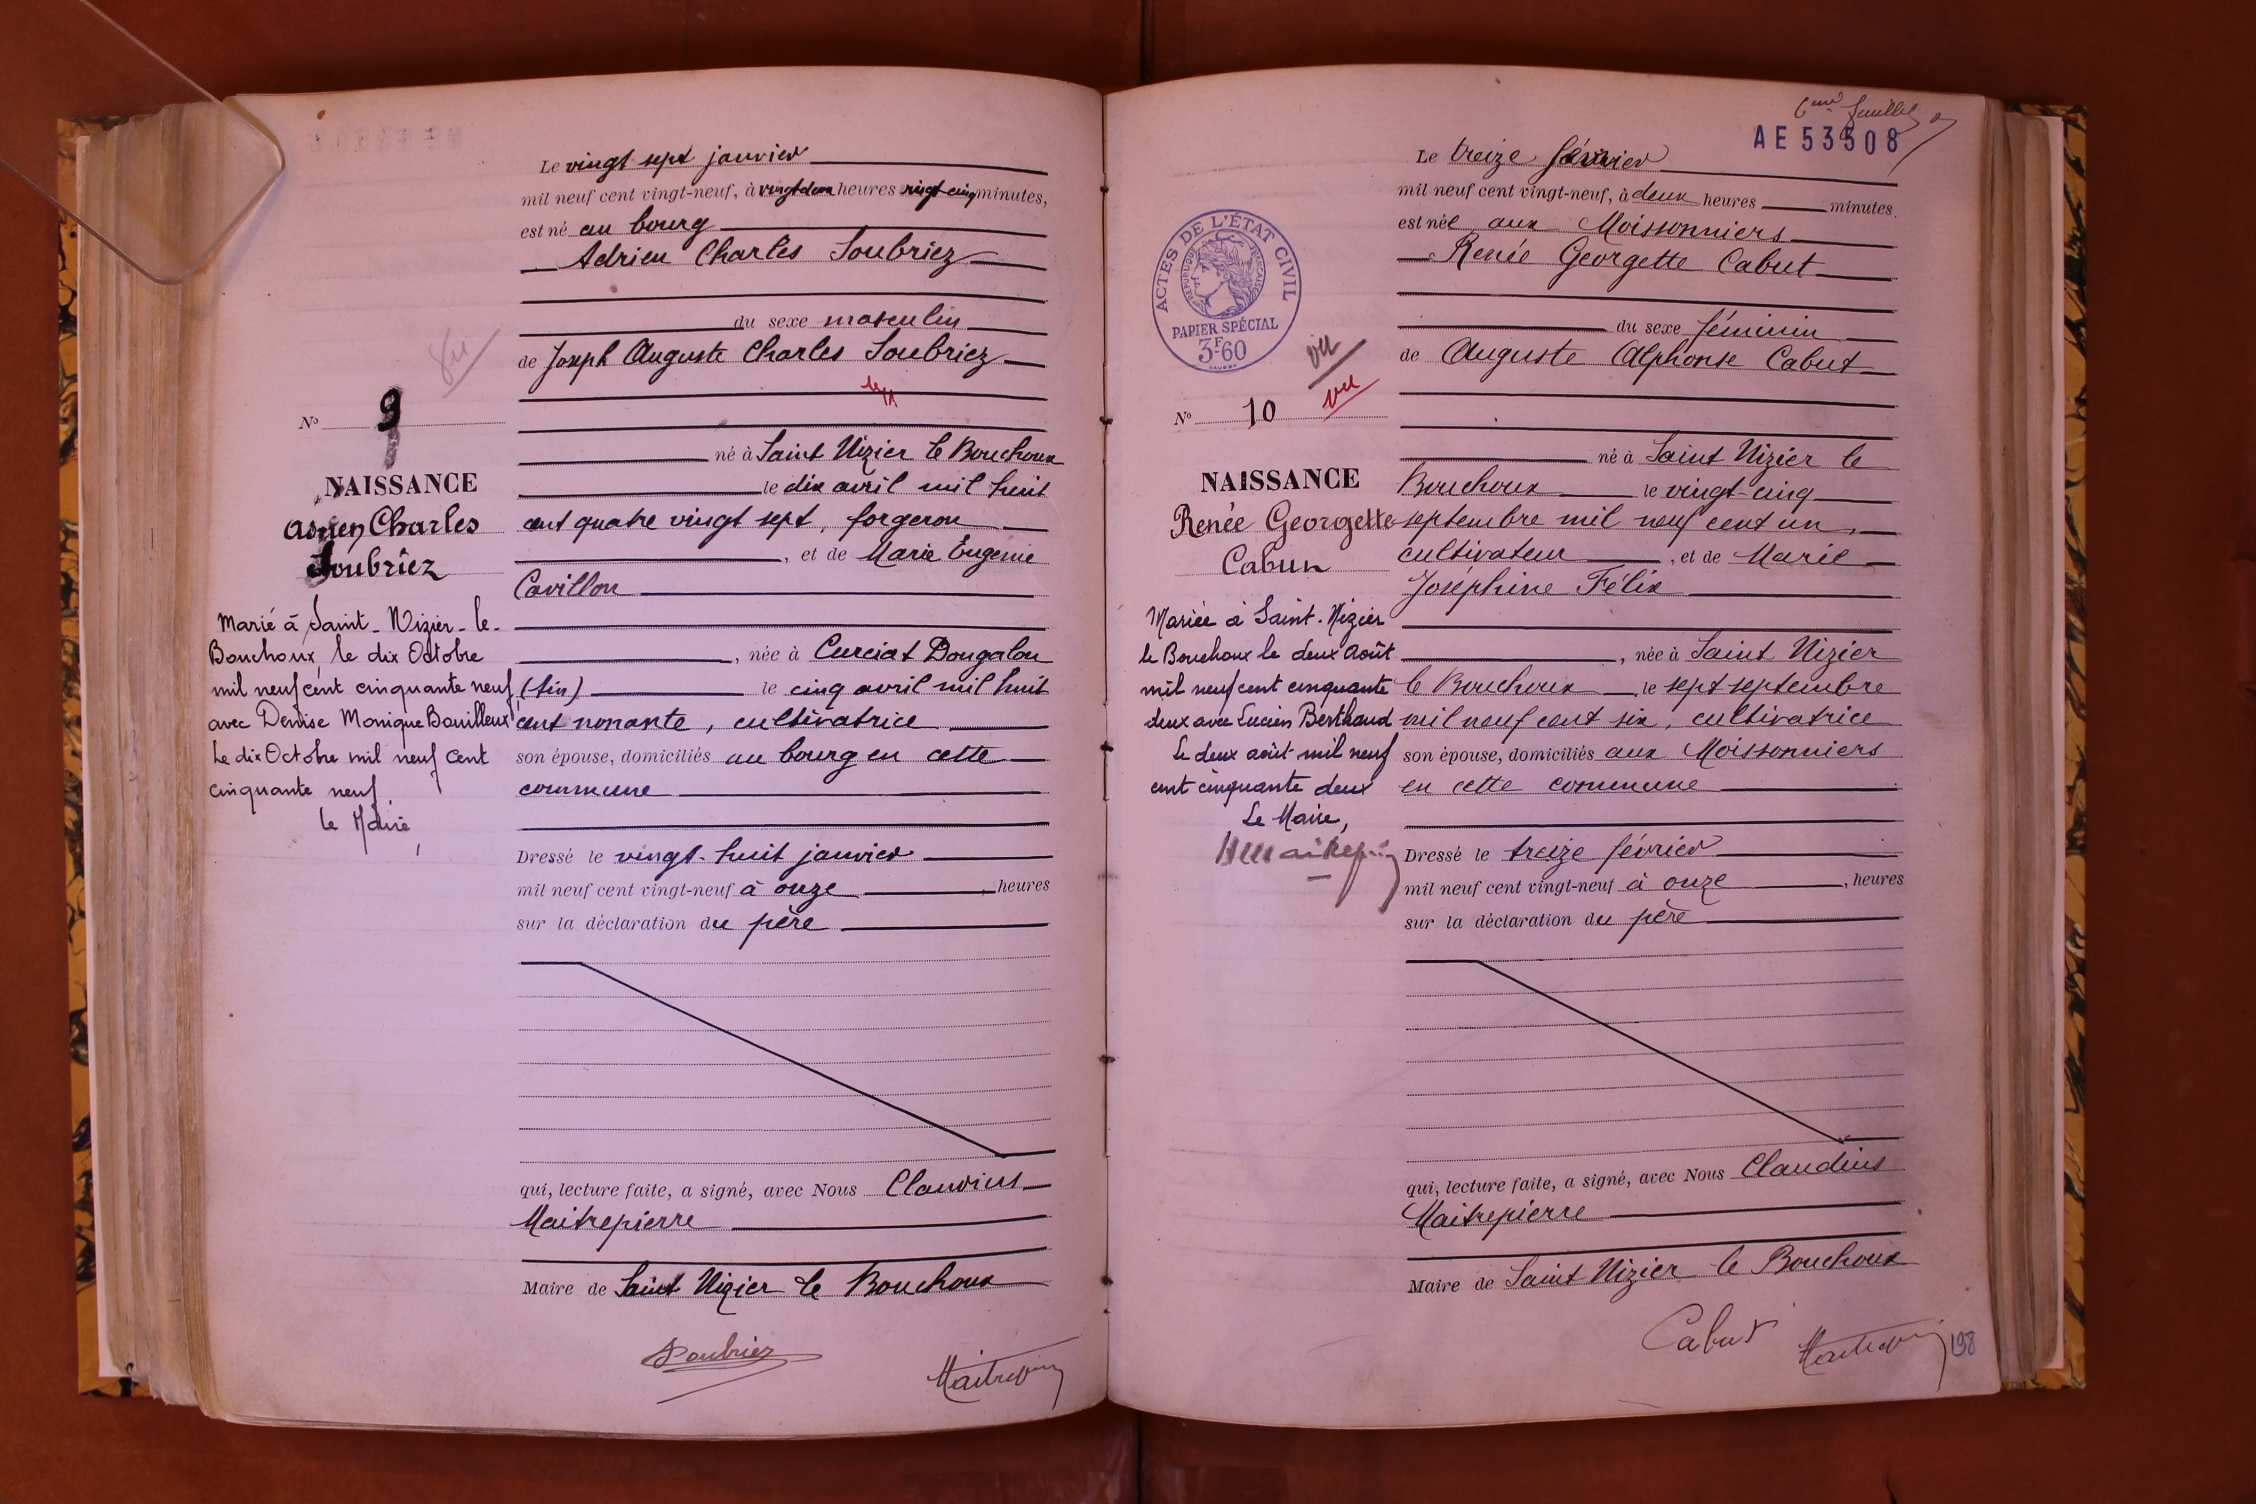 Le vingt sept janvier
mil neuf cent vingt-neuf, à vingt deux heures vingt cinq minutes,
est né au bourg
Adrien Charles Soubriez
du sexe masculin
de Joseph Auguste Charles Soubriez
vu
N° 9
né à Saint Nizier le Bouchoux
NAISSANCE
le dix avril mil huit
Adrien Charles
cent quatre vingt sept, forgeron
Soubriez
, et de Marie Eugénie
Cavillon
Marié à Saint-Nizier-le-
Bouchoux, le dix Octobre
mil neuf cent cinquante neuf
avec Denise Monique Bouilleux
Le dix Octobre mil neuf cent
cinquante neuf
le Maire,
, née à Curciat Dongalon
(Ain) le cinq avril mil huit
cent nonante, cultivatrice
son épouse, domiciliés au bourg en cette
commune
Dressé le vingt-huit janvier
mil neuf cent vingt-neuf à onze , heures
sur la déclaration du père
qui, lecture faite, a signé, avec Nous Claudius
Maitrepierre
Maire de Saint Nizier le Bouchoux
Soubriez
6ème feuillet
AE 53508
Le treize février
mil neuf cent vingt-neuf, à deux heures minutes.
est née aux Moissonniers
Renée Georgette Cabut
ACTES DE L'ÉTAT CIVIL
RÉPUBLIQUE FRANÇAISE
PAPIER SPÉCIAL
3F60
du sexe féminin
vu
de Auguste Alphonse Cabut
vu
N° 10
né à Saint Nizier le
NAISSANCE
Bouchoux le vingt-cinq
Renée Georgette
septembre mil neuf cent un,
Cabut
cultivateur , et de Marie
Joséphine Félix
Mariée à Saint-Nizier
le Bouchoux le deux Août
mil neuf cent cinquante
deux avec Lucien Berthaud
Le deux août mil neuf
cent cinquante deux
Le Maire,
, née à Saint Nizier
le Bouchoux , le sept septembre
mil neuf cent six, cultivatrice
son épouse, domiciliés aux Moissonniers
en cette commune
Dressé le treize février
mil neuf cent vingt-neuf à onze , heures
sur la déclaration du père
qui, lecture faite, a signé, avec Nous Claudius
Maitrepierre
Maire de Saint Nizier le Bouchoux
Cabut
198